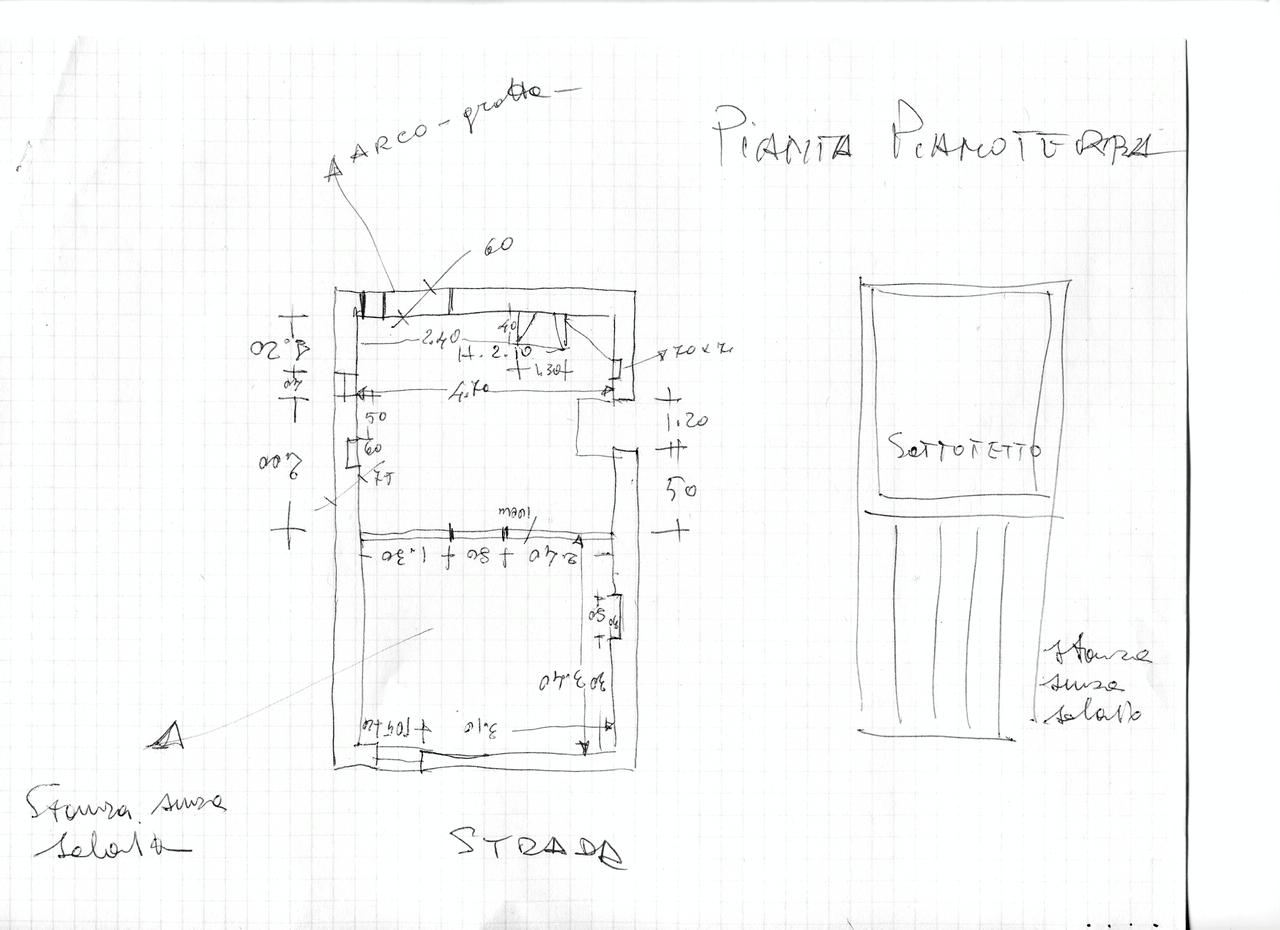 ARCO - grotta
PIANTA PIANOTERRA
60
2.40
40
H. 2.10
70 x 7
4.70
1.20
40
50
1.20
60
2.00
50
1.30
80
2.40
50
30
SOTTOTETTO
3.40
30
3.10
stanza
senza
solaio
Stanza senza
solaio
STRADA